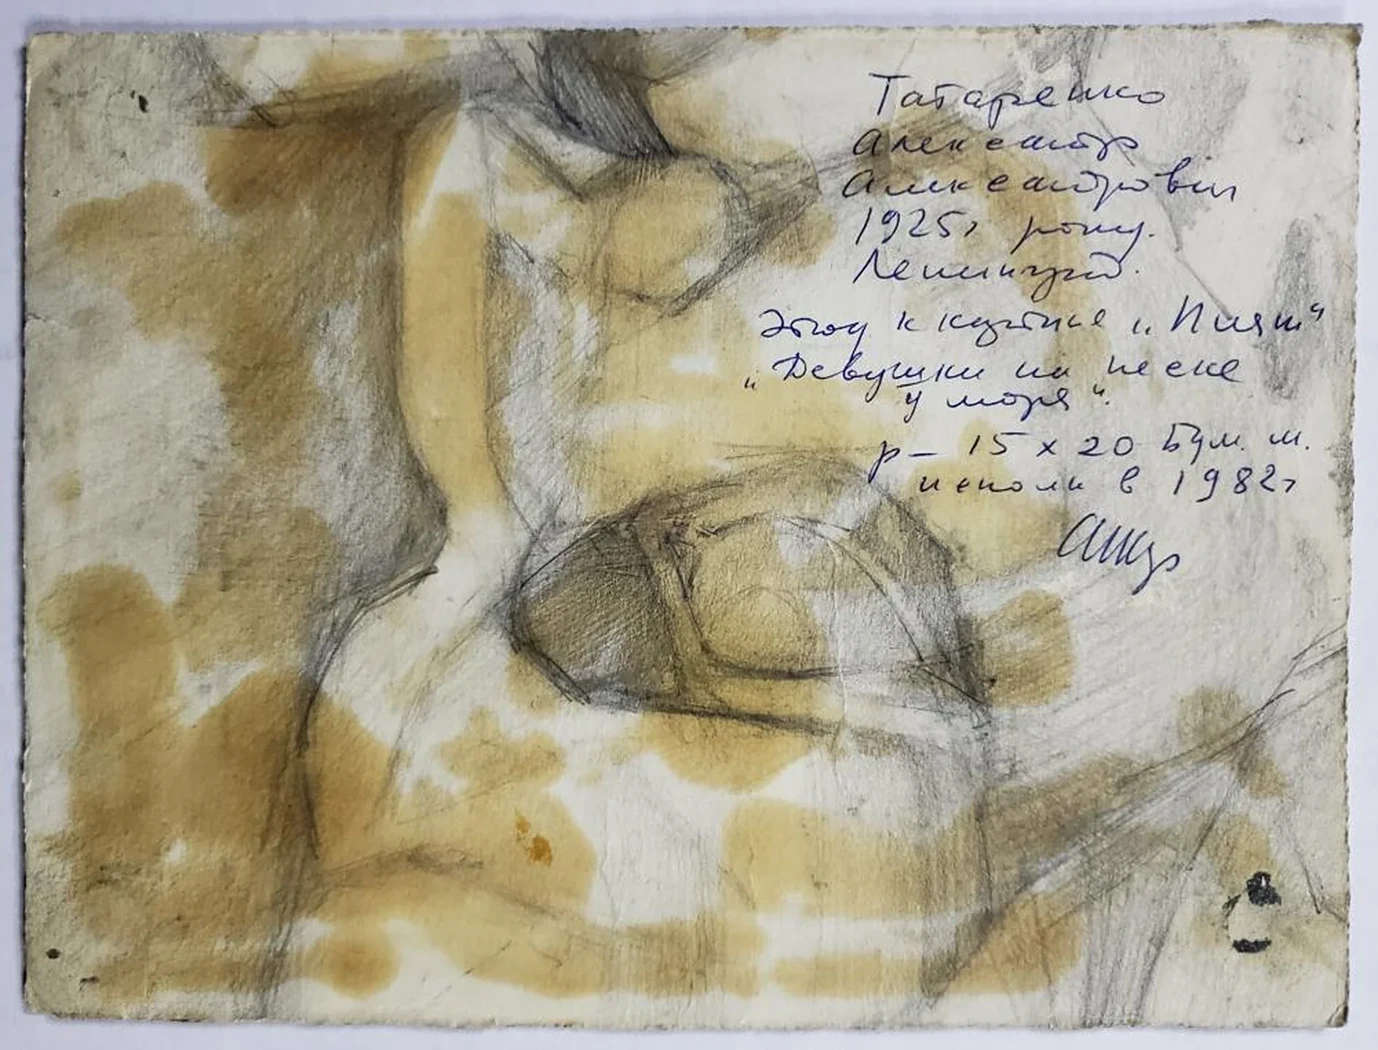 Татаренко
Александр
Александрович
1925г року.
Ленинград.
Этюд к картине „Пляж“
„Девушки на песке
у моря“.
р – 15 x 20 Бум. м.
исполн в 1982г